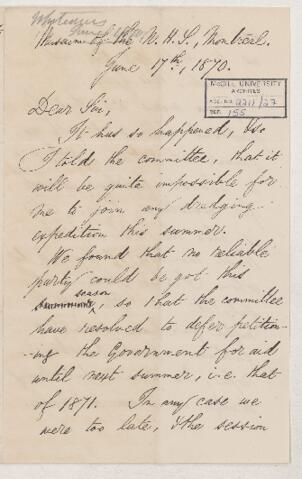 Whiteaves
Museum of the N. H. S., Montreal.
June 17th, 1870.
McGILL UNIVERSITY
ARCHIVES
ACC. NO. 2211/27
REF. 155
Dear Sir,
It has so happened, as
I told the committee, that it
will be quite impossible for
me to join any dredging
expedition this summer.
We found that no reliable
party could be got this
season
summer, so that the committee
have resolved to defer petition-
-ing the Government for aid
until next summer, i.e. that
of 1871. In any case we
were too late, & the session